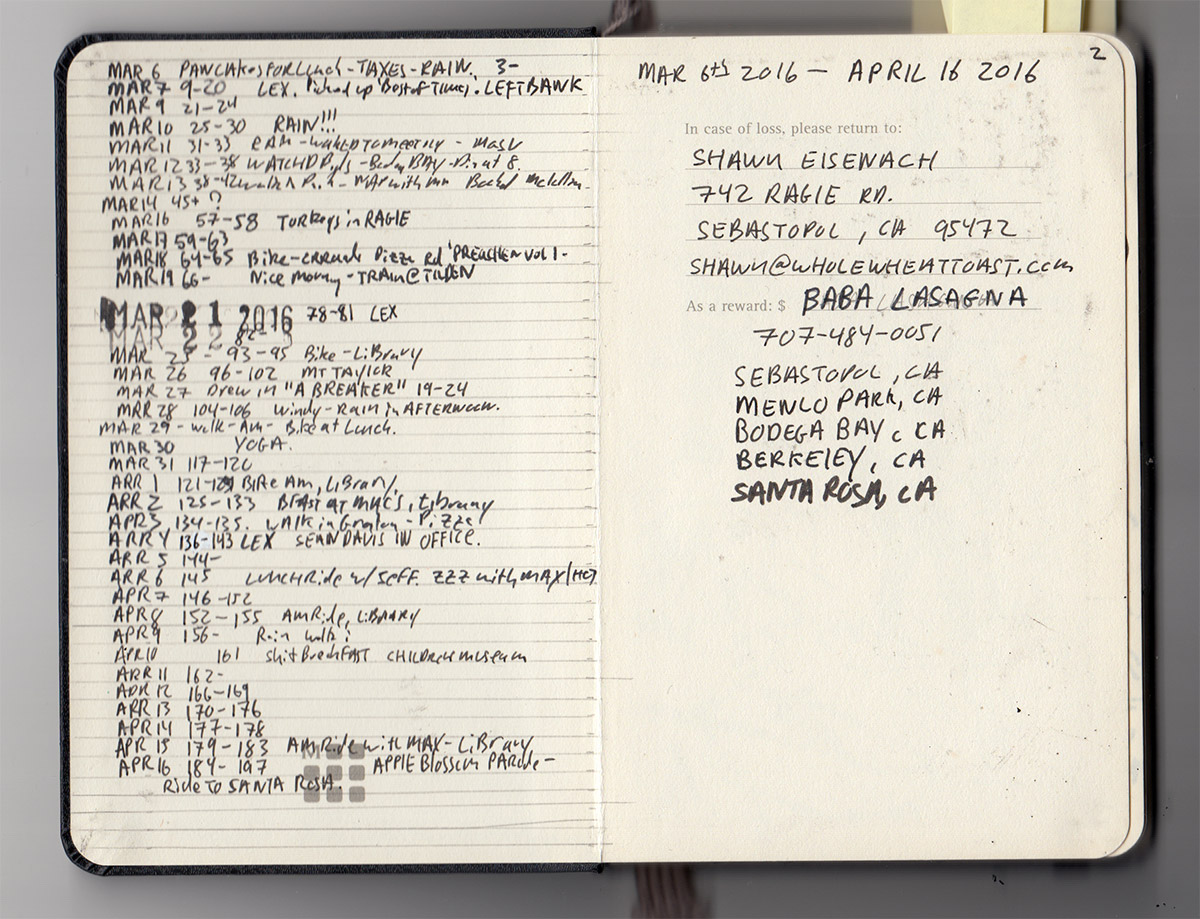 MAR 6 PANCAKES FOR Lunch - TAXES - RAIN. 3-
MAR 7 9-20 LEX. Picked up 'Best of Times'. LEFT BANK
MAR 9 21-24
MAR 10 25-30 RAIN!!!
MAR 11 31-33 RAM - WALKED TO MEETING -
MAR 12 33-38 WATCHD Pigs - Bodega BAY -
MAR 13 38-42 - with
MAR 14 45+ ?
MAR 16 57-58 TURKEYS in RAGLE
MAR 17 59-63
MAR 18 64-65 Bike - ERRANDS Pizza Rd 'PREACHER VOL 1 -
MAR 19 66- Nice morning - TRAIN @ TILDEN
MAR 21 2016 78-81 LEX
MAR 22 82-
MAR 25 - 93-95 Bike - LiBrary
MAR 26 96-102 MT TAYLOR
MAR 27 Drew in "A BREAKER" 19-24
MAR 28 104-106 Windy - Rain in AFTERNOON.
MAR 29 - walk - Am - Bike at Lunch.
MAR 30 YOGA.
MAR 31 117-120
APR 1 121- BIKE Am, LiBrary,
APR 2 125-133 BFAST AT MAC'S, Library
APR 3, 134-135. WALK in Graton - Pizza
APR 4 136-143 LEX SEAN DAVIS IN OFFICE.
APR 5 144-
APR 6 145 LUNCH Ride w/ Jeff. ZZZ with MAX/
APR 7 146-152
APR 8 152-155 AM Ride, LIBRARY
APR 9 156- Rain walk!
APR 10 161 BreakFAST CHILDREN MUSEUM
APR 11 162-
APR 12 166-169
APR 13 170-176
APR 14 177-178
APR 15 179-183 AM Ride with MAX - LiBrary,
APR 16 184-197 APPLE Blossom PARADE -
Ride TO SANTA ROSA.
2
MAR 6th 2016 - APRIL 16 2016
In case of loss, please return to:
SHAWN EISENACH
742 RAGLE RD.
SEBASTOPOL, CA 95472
SHAWN@WHOLEWHEATTOAST.com
As a reward: $ BABA LASAGNA
707-484-0051
SEBASTOPOL, CA
MENLO PARK, CA
BODEGA BAY, CA
BERKELEY, CA
SANTA ROSA, CA